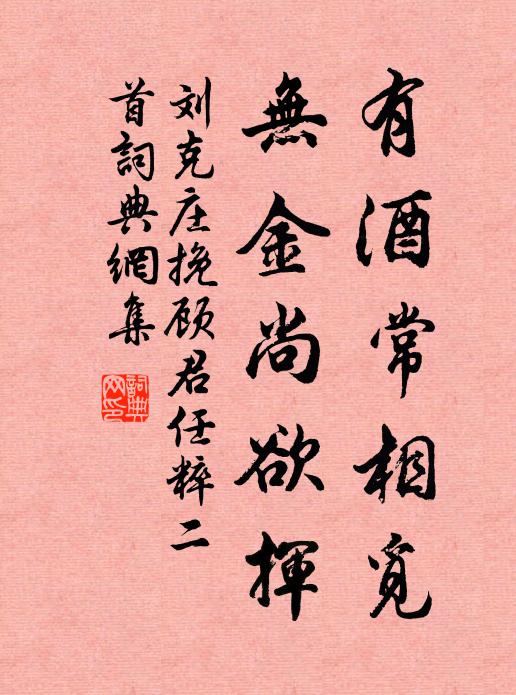 有酒常相覓
無金尚欲揮
刘克庄挽顾君任粹二
首詞典網集
詞典
网印